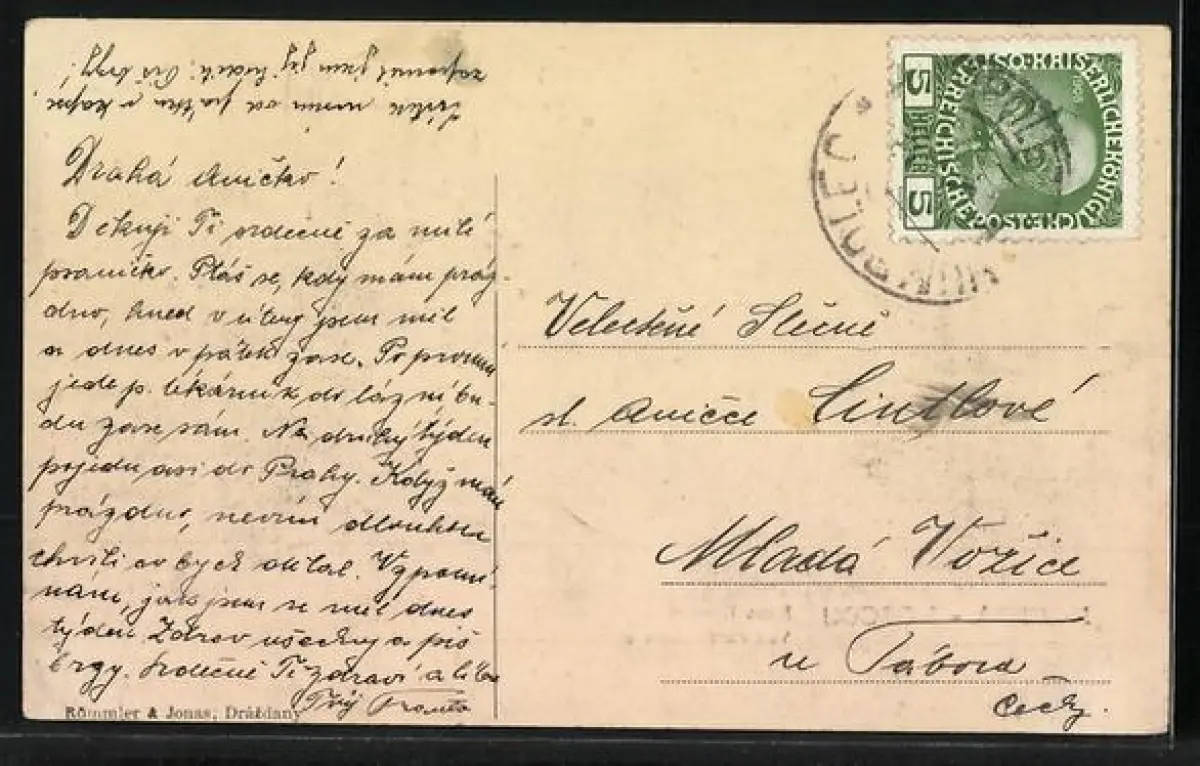 Drahá Aničko!
Děkuji Ti srdečně za milé
psaníčko. Ptáš se, kdy mám práz-
dno, hned v úterý jsem měl
a dnes v pátek zase. Po
jede p. lékárník do lázní bu-
du zase sám. Na druhý týden
pojedu asi do Prahy. Když mám
prázdno, nevím dlouhou
chvílí co bych dělal. Vzpomí-
nám, jak jsem se měl dnes
týden. Zdrav všechny a piš
brzy. Srdečně Tě zdraví a líbá
Tvůj Franta
Römmler & Jonas, Drážďany
ERREICHISCHE POST KAISERLICHE KÖNIGLICHE
5 HELLER 5
1908
Velectěné Slečně
sl. Aničce
Mladá Vožice
u Tábora
Čechy.